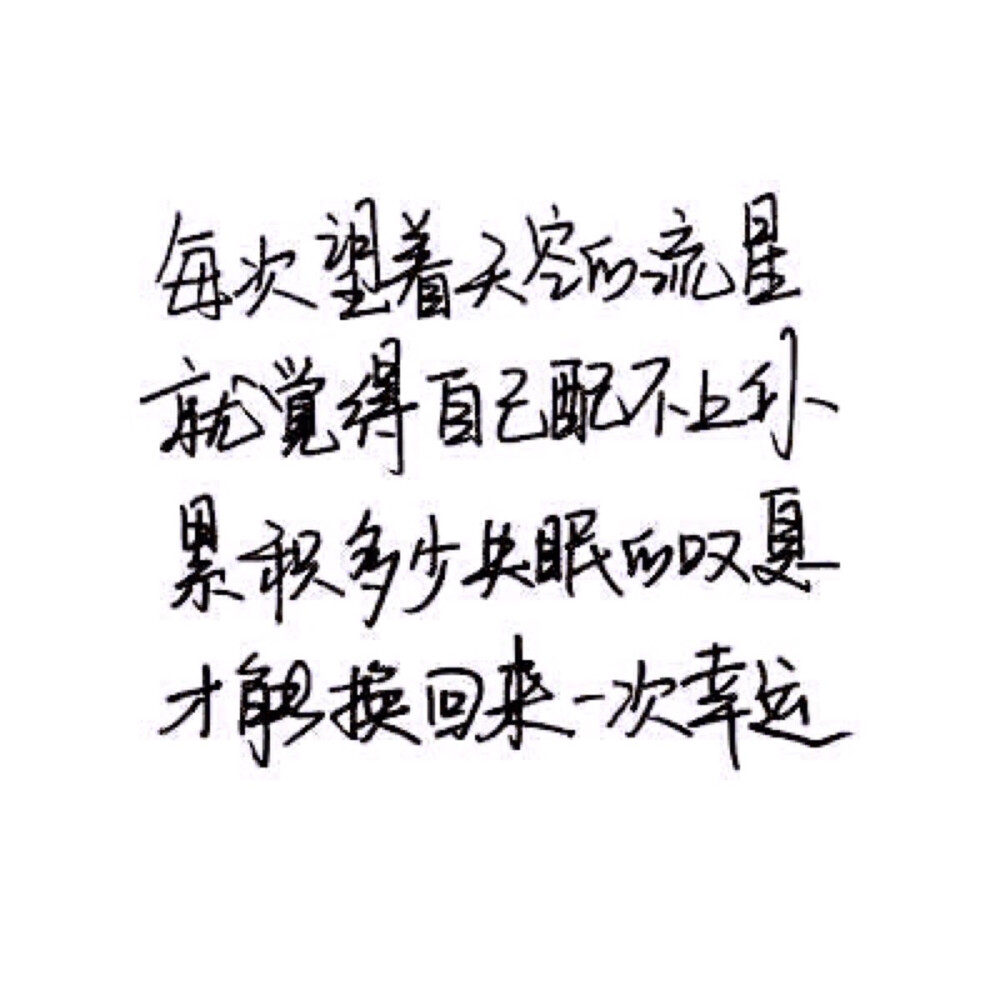 每次望着天空的流星
就觉得自己配不上你
累积多少失眠的叹息
才能换回来一次幸运